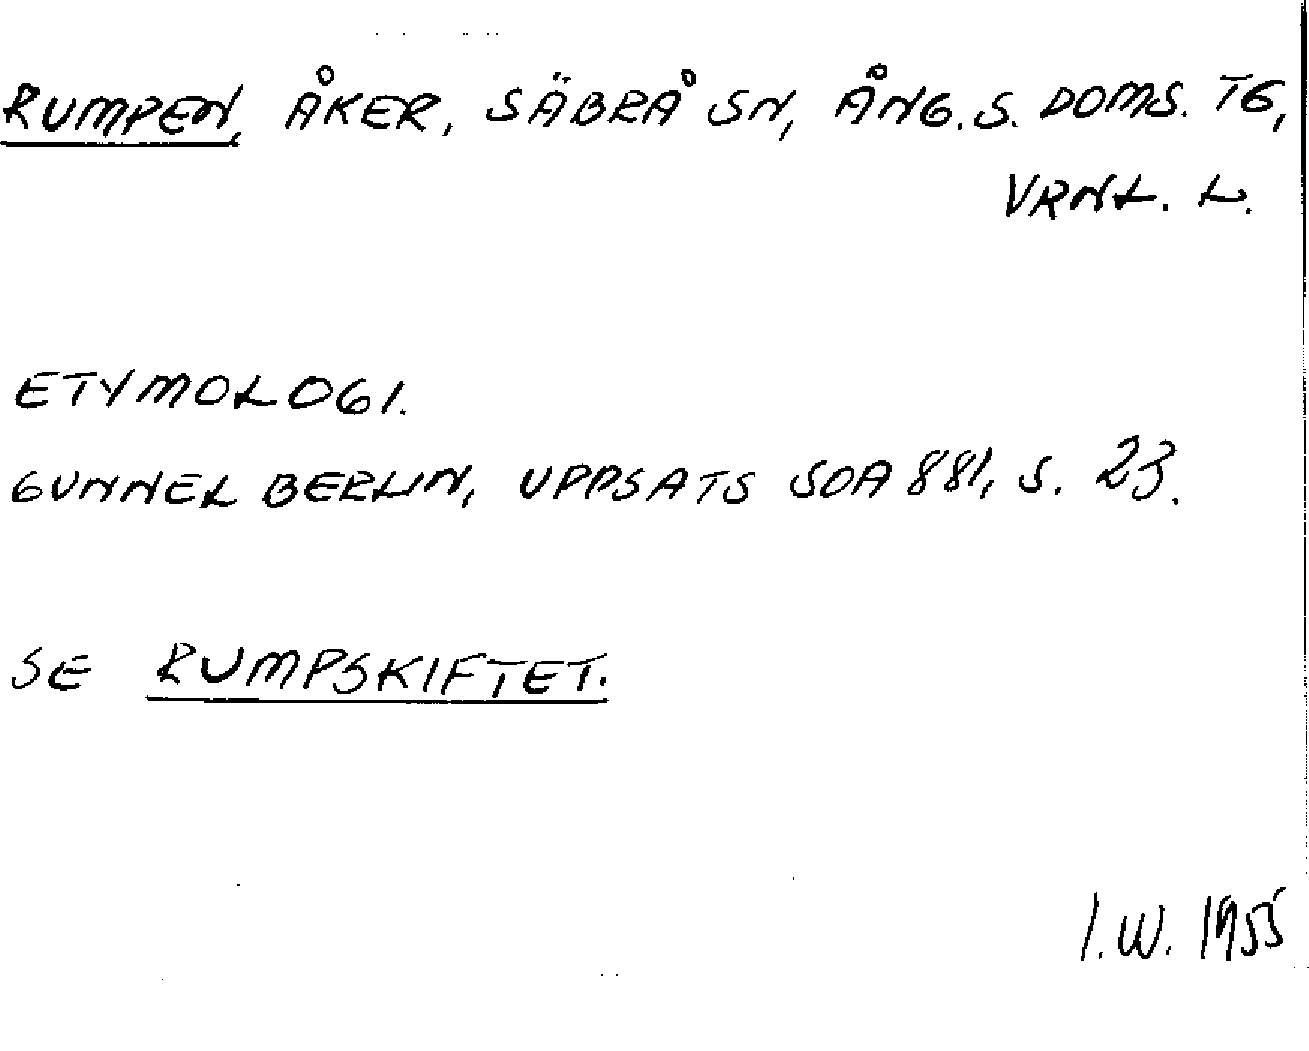 RUMPEN, ÅKER, SÄBRÅ SN, ÅNG. S. DOMS. TG,
VRNL. L.
ETYMOLOGI.
GUNNEL BERLIN, UPPSATS SOA 881, S. 23.
SE RUMPSKIFTET.
I.W. 1955